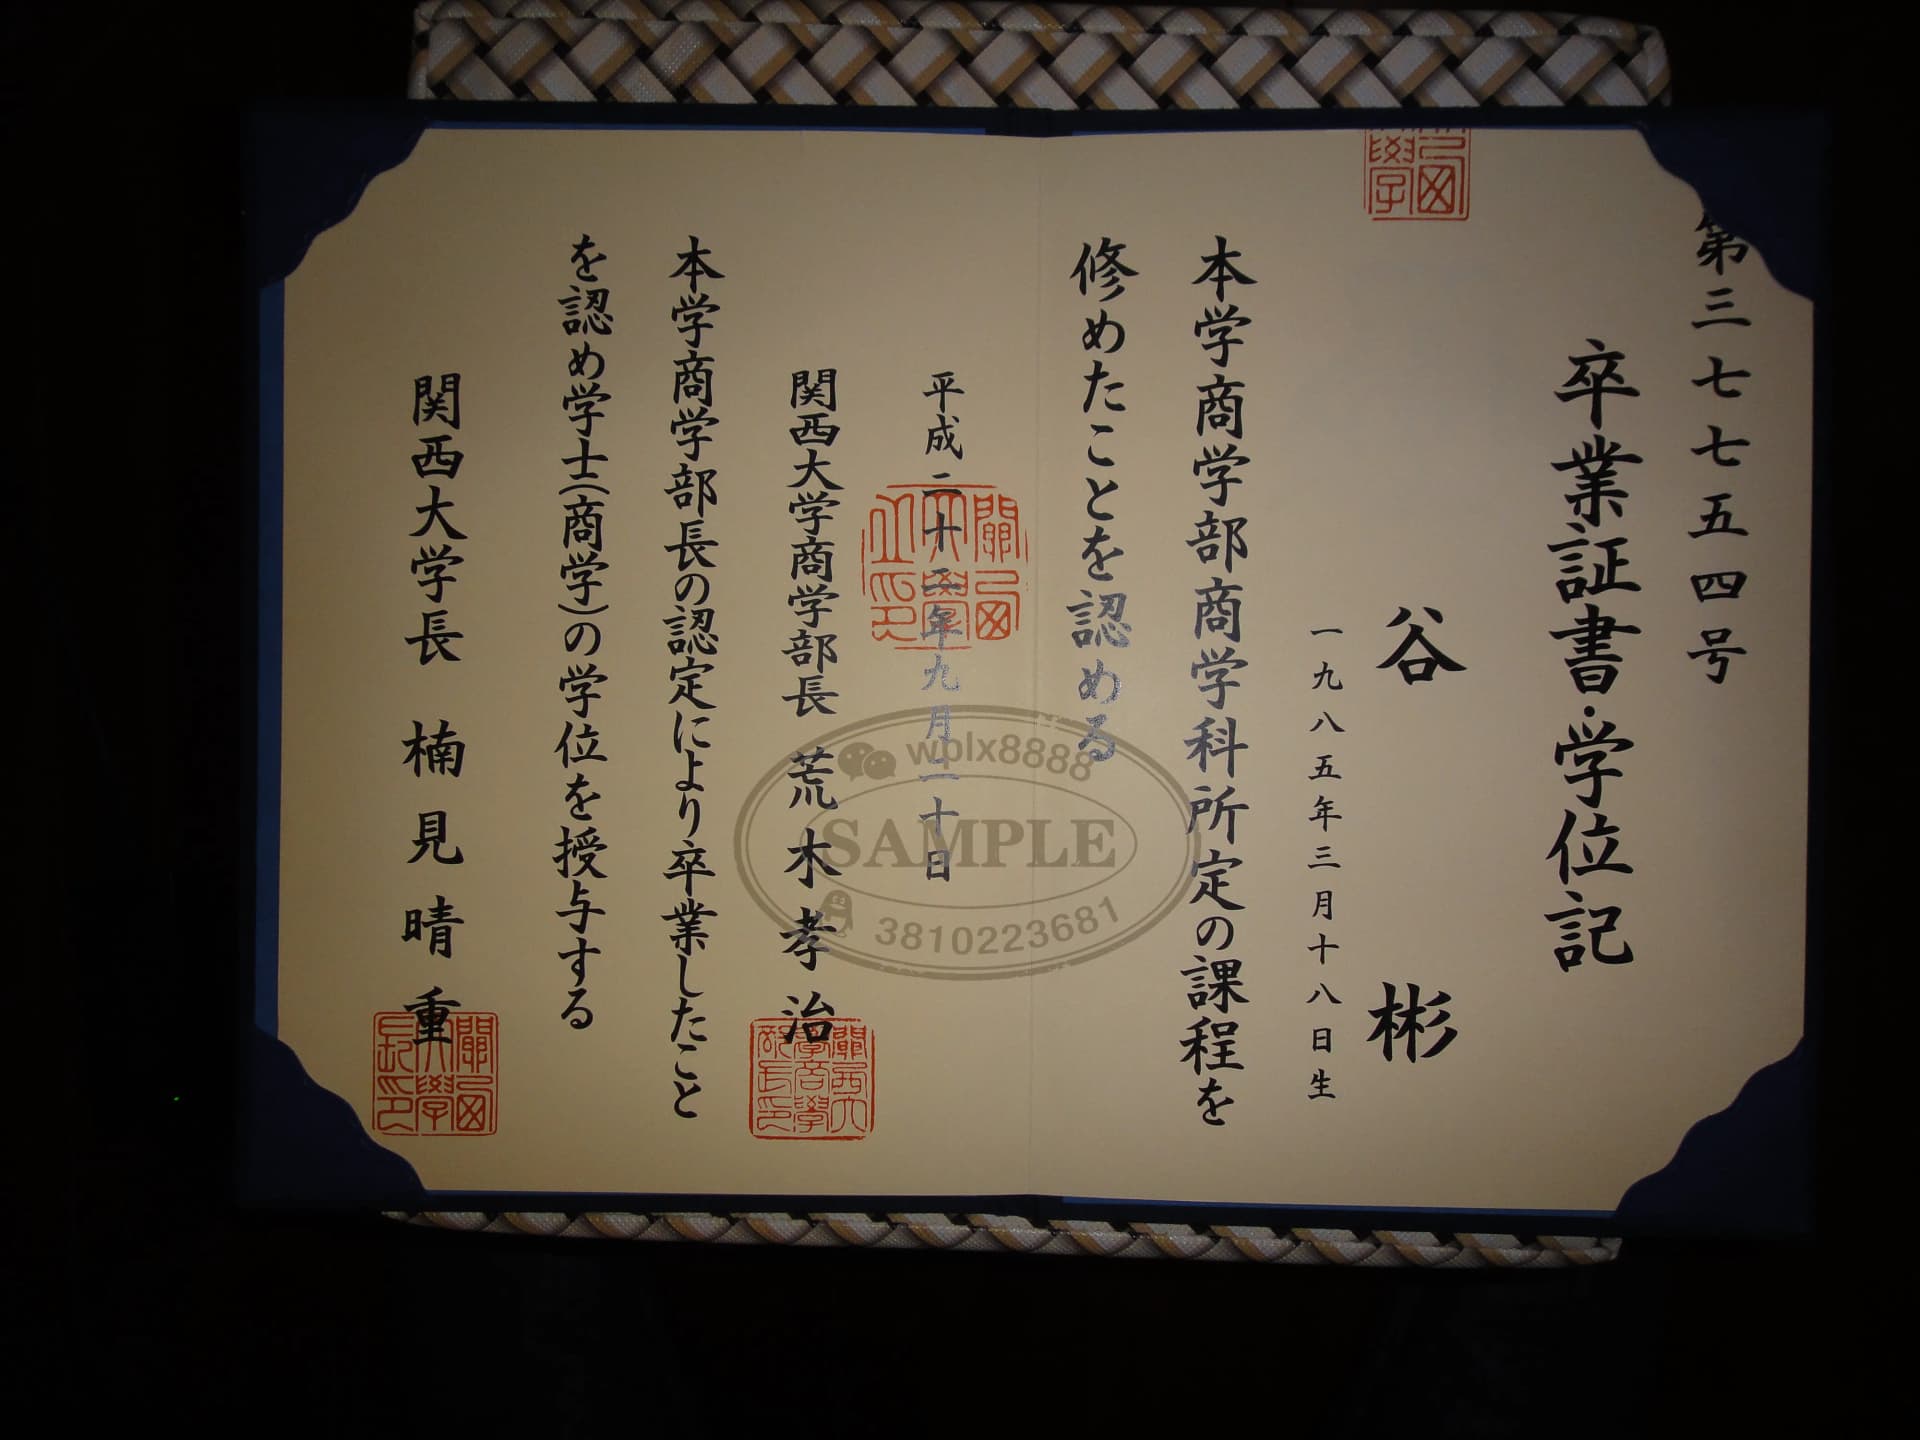 第三七七五四号
卒業証書・学位記
谷 彬
一九八五年三月十八日生
本学商学部商学科所定の課程を
修めたことを認める
平成二十二年九月二十日
関西大学商学部長 荒木孝治
本学商学部長の認定により卒業したこと
を認め学士(商学)の学位を授与する
関西大学長 楠見晴重
wplx8888
SAMPLE
3810223681